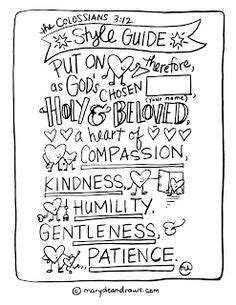 the COLOSSIANS 3:12
Style GUIDE
PUT ON therefore,
as GOD'S CHOSEN
(your name)
HOLY & BELOVED,
a heart of
COMPASSION,
KINDNESS,
HUMILITY,
GENTLENESS, &
PATIENCE.
© marydeandraws.com